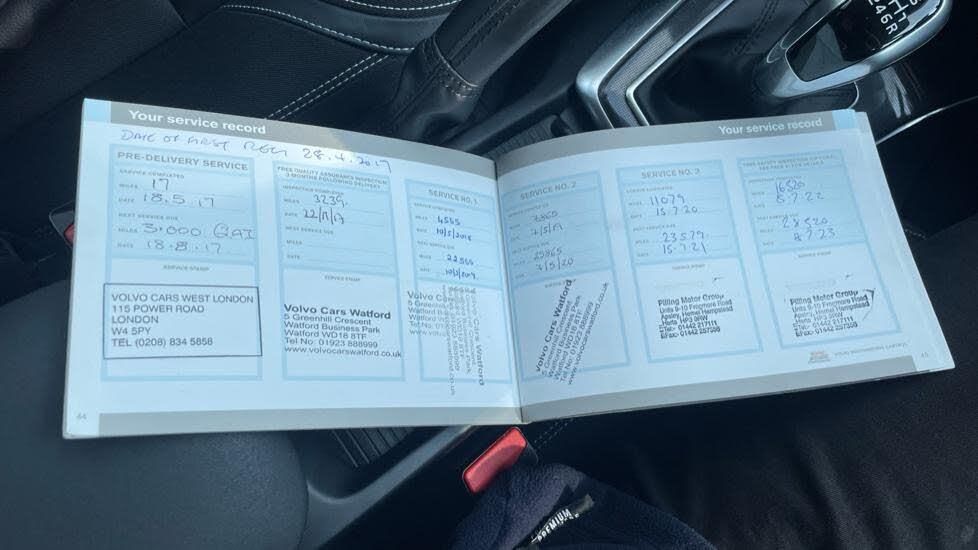 Your service record
DATE OF FIRST REG 28.4.2017
PRE-DELIVERY SERVICE
SERVICE COMPLETED
MILES 17
DATE 18.5.17
NEXT SERVICE DUE
MILES 3,000 QAI
DATE 18.8.17
SERVICE STAMP
VOLVO CARS WEST LONDON
115 POWER ROAD
LONDON
W4 5PY
TEL (0208) 834 5858
FREE QUALITY ASSURANCE INSPECTION
3 MONTHS FOLLOWING DELIVERY
INSPECTION COMPLETED
MILES 3239
DATE
NEXT SERVICE DUE
MILES
DATE
SERVICE STAMP
Volvo Cars Watford
5 Greenhill Crescent
Watford Business Park
Watford WD18 8TF
Tel No: 01923 888999
www.volvocarswatford.co.uk
SERVICE NO. 1
SERVICE COMPLETED
MILES 4555
DATE 10/5/2018
NEXT SERVICE DUE
MILES 22555
DATE 10/5/2019
Volvo Cars Watford
44
Your service record
SERVICE NO. 2
SERVICE COMPLETED
MILES 7865
DATE
NEXT SERVICE DUE
MILES 25865
DATE 7/5/20
SERVICE STAMP
Volvo Cars Watford
5 Greenhill Crescent
Watford Business Park
Watford WD18 8TF
Tel No: 01923 888999
www.volvocarswatford.co.uk
SERVICE NO. 3
SERVICE COMPLETED
MILES 11079
DATE 15.7.20
NEXT SERVICE DUE
MILES 23579
DATE 15.7.21
SERVICE STAMP
Pilling Motor Group
Units 9-10 Frogmore Road
Apsley, Hemel Hempstead
Herts HP3 9RW
Tel: 01442 217111
Fax: 01442 257358
MILES 16520
DATE 8.7.22
NEXT SERVICE DUE
MILES 28520
DATE 8.7.23
SERVICE STAMP
Pilling Motor Group
Units 9-10 Frogmore Road
Apsley, Hemel Hempstead
Herts HP3 9RW
Tel: 01442 217111
Fax: 01442 257358
45
246R
PREMIUM